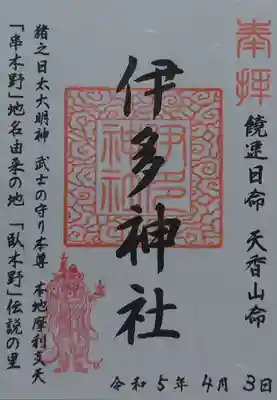 奉拝
饒速日命 天香山命
伊多神社
猪之日太大明神 武士の守り本尊 本地摩利支天
「串木野」地名由来の地 「臥木野」伝説の里
令和5年4月3日